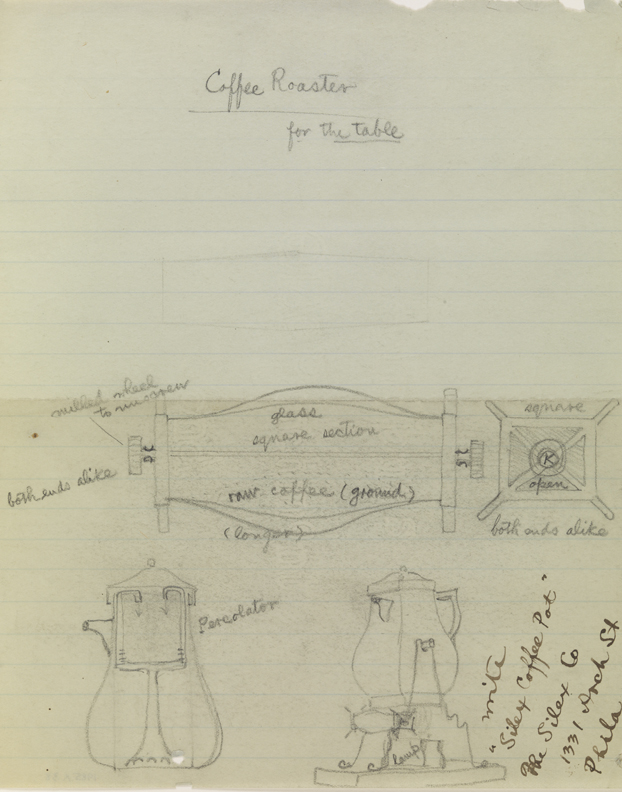 Coffee Roaster
for the table
milled wheel
to unscrew
both ends alike
glass
square section
raw coffee (ground)
(longer)
square
K
open
both ends alike
Percolator
lamp
write
"Silex Coffee Pot"
The Silex Co
1331 Arch St
Phila